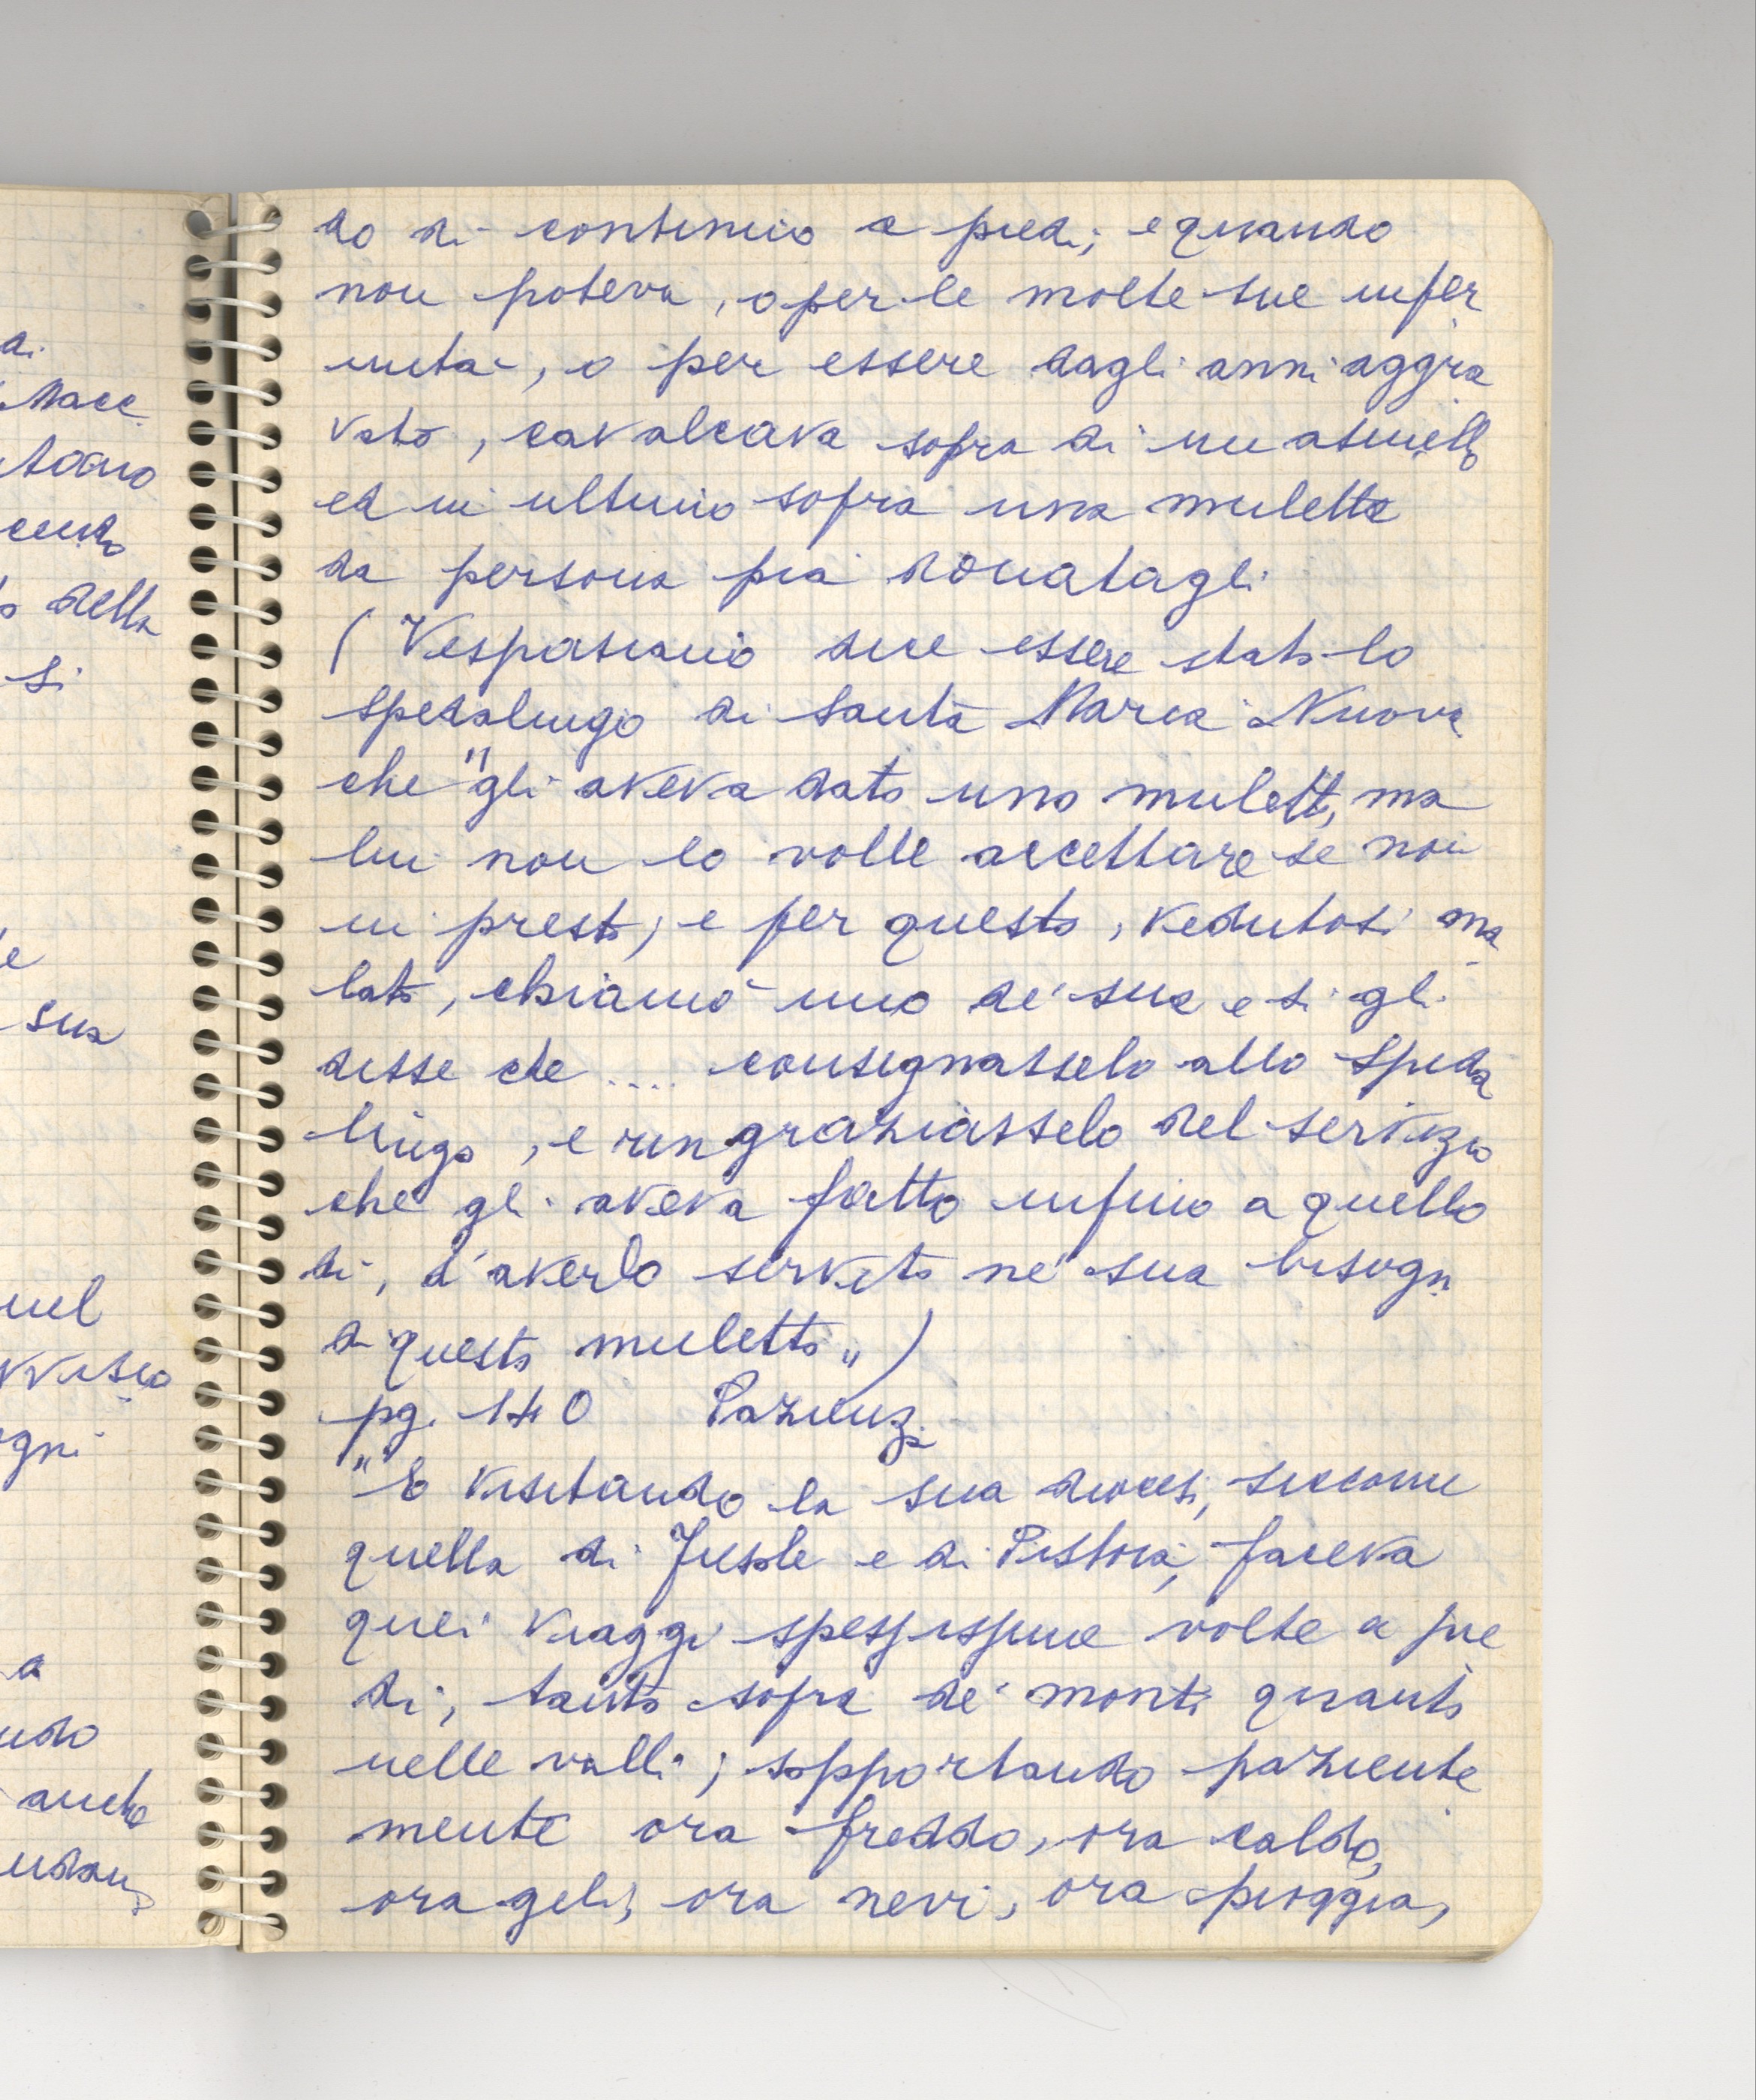 di
Nacc
tocno
cento
o della
si
e
sua
uel
vviso
ogni
a
ndo
anche
ndans
do di continuo a piedi; e quando
non poteva, o per le molte sue infer
mità, o per essere dagli anni aggra
vato, cavalcava sopra di un asinello
ed in ultimo sopra una muletta
da persona pia donatagli
(Vespasiano dice essere stato lo
spedalingo di Santa Maria Nuova
che "gli aveva dato uno muletto, ma
lui non lo volle accettare se non
in presto; e per questo, vedutosi ma
lato, chiamò uno de' sua e si gli
disse che .... consegnasselo allo speda
lingo, e ringraziasselo del servizio
che gli aveva fatto infino a quello
dì, d'averlo servito ne' sua bisogni
di questo muletto")
pg. 140 Pazienza
"E visitando la sua diocesi, siccome
quella di Fiesole e di Pistoia, faceva
quei viaggi spessissime volte a pie
di, tanto sopra de' monti quanto
nelle valli; sopportando paziente
mente ora freddo, ora caldo,
ora geli, ora nevi, ora pioggia,